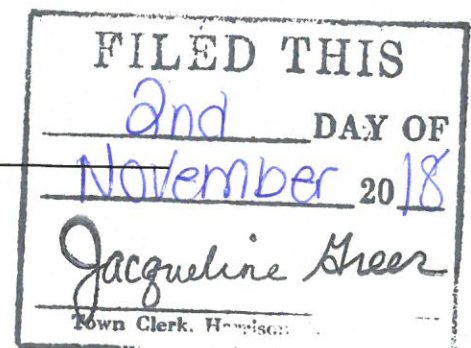 FILED THIS
2nd DAY OF
November 2018
Jacqueline Greer
Town Clerk, Harrison